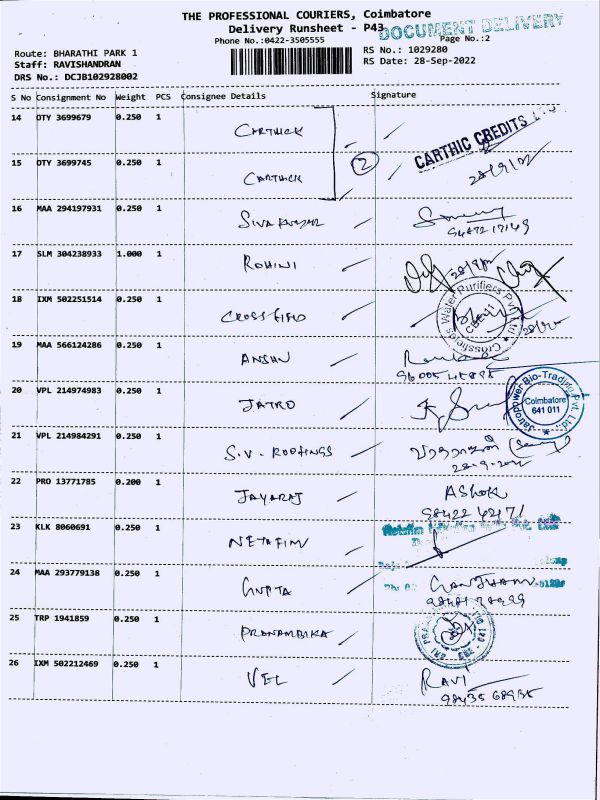 THE PROFESSIONAL COURIERS, Coimbatore
Delivery Runsheet - P43
DOCUMENT DELIVERY
Phone No.:0422-3505555
Page No.:2
Route: BHARATHI PARK 1
RS No.: 1029280
Staff: RAVISHANDRAN
RS Date: 28-Sep-2022
DRS No.: DCJB102928002
S No Consignment No Weight PCS Consignee Details Signature
14 OTY 3699679 0.250 1 CARTHICK
CARTHIC CREDITS
15 OTY 3699745 0.250 1 CARTHICK 2 28/9/22
16 MAA 294197931 0.250 1 SIVAKUMAR
9487217149
17 SLM 304238933 1.000 1 ROHINI
18 IXM 502251514 0.250 1 CROSSFIELD Crossfields Water Purifiers Pvt Ltd CBE-11
19 MAA 566124286 0.250 1 ANSHU
20 VPL 214974983 0.250 1 JATRO Jatropower Bio-Trading Pvt. Ltd., Coimbatore 641 011
21 VPL 214984291 0.250 1 S.V. ROOFINGS
22 PRO 13771785 0.200 1 JAYARAJ ASHOK
98422 42171
23 KLK 8060691 0.250 1 NETAFIM
24 MAA 293779138 0.250 1 GUPTA
25 TRP 1941859 0.250 1 PRANAMBIKA
26 IXM 502212469 0.250 1 VEL RAVI
98435 68935